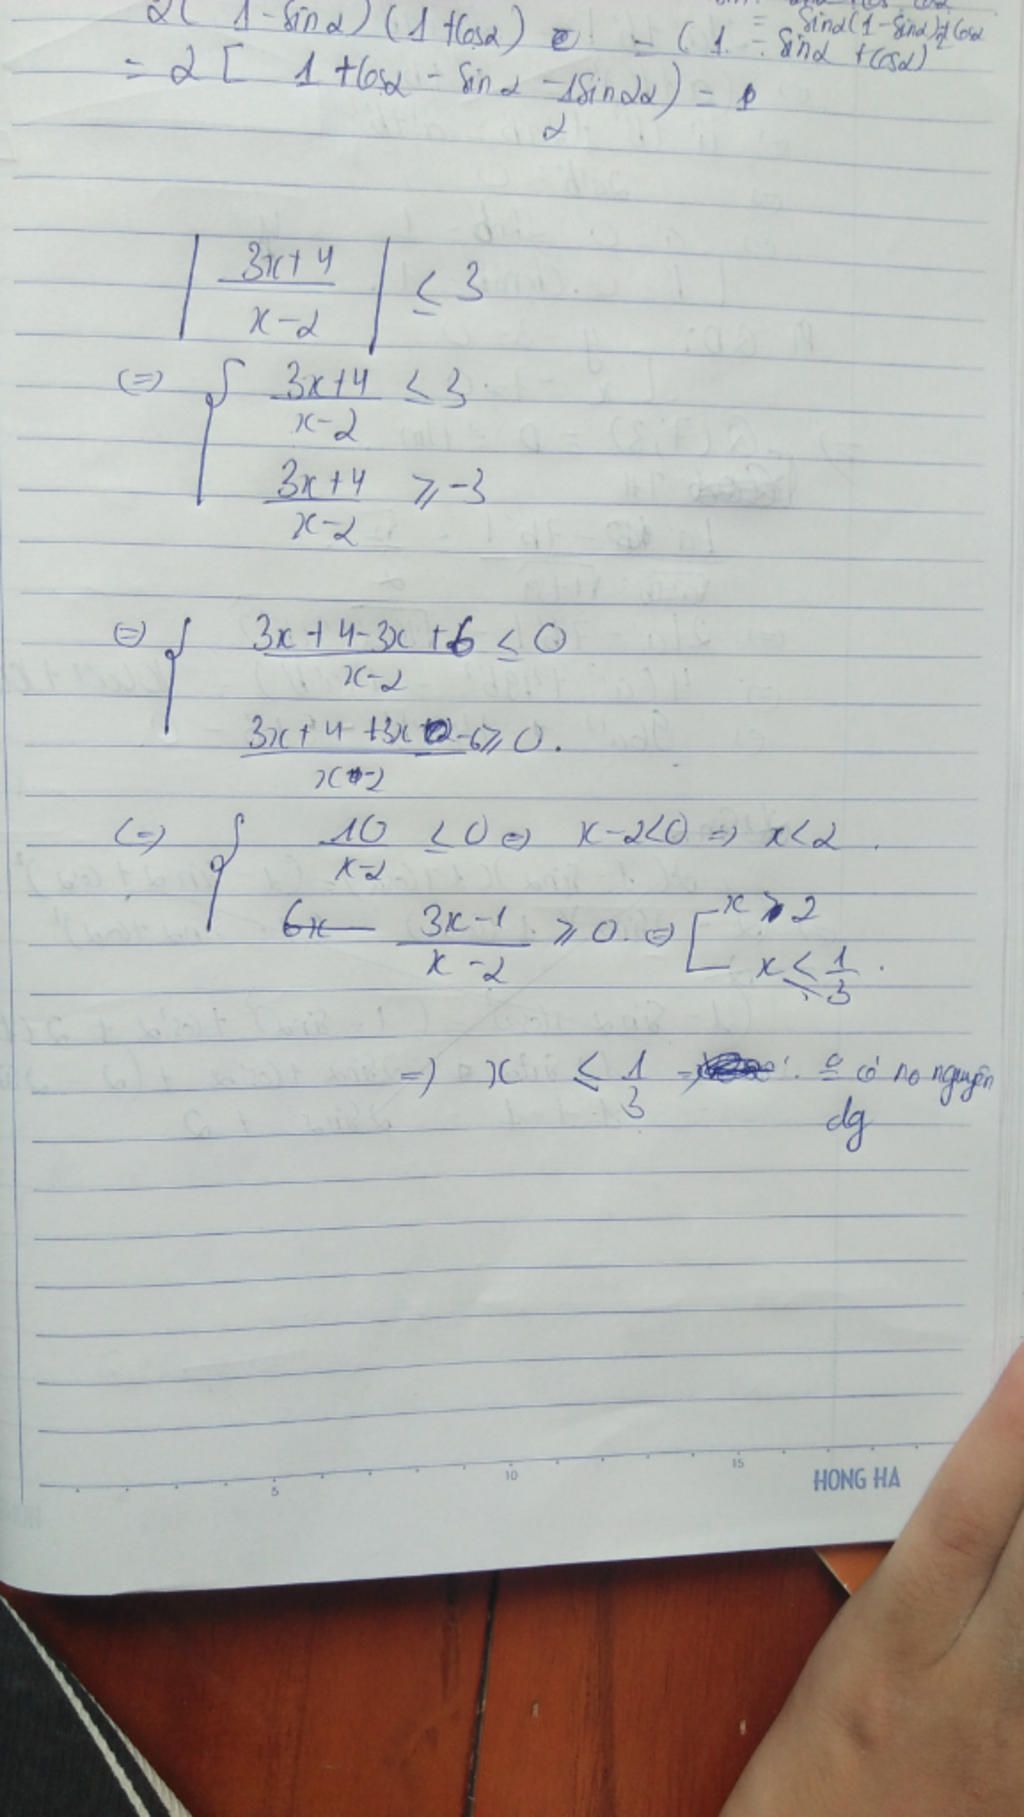 2( 1-sinα) (1+cosα) = ( 1 - sinα + cosα)²
= 2 [ 1 + cosα - sinα - 1/2 sin2α) = 1
| (3x+4)/(x-2) | ≤ 3
(=) { (3x+4)/(x-2) ≤ 3
(3x+4)/(x-2) ≥ -3
(=) { (3x+4-3x+6)/(x-2) ≤ 0
(3x+4+3x-6)/(x-2) ≥ 0.
(=) { 10/(x-2) ≤ 0 => x-2<0 => x<2.
6x (3x-1)/(x-2) ≥ 0. => [ x > 2
x ≤ 1/3.
=) x ≤ 1/3 có no nguyên
dg
5 10 15
HONG HA